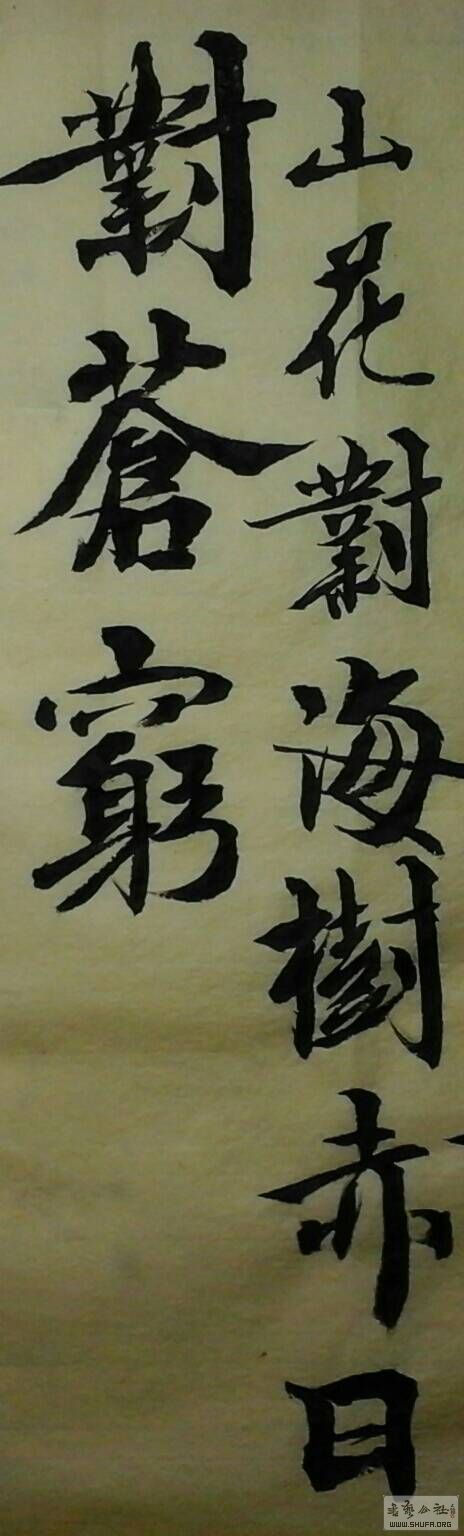 山花對海樹赤日
對蒼窮
書藝公社
WWW.SHUFA.ORG